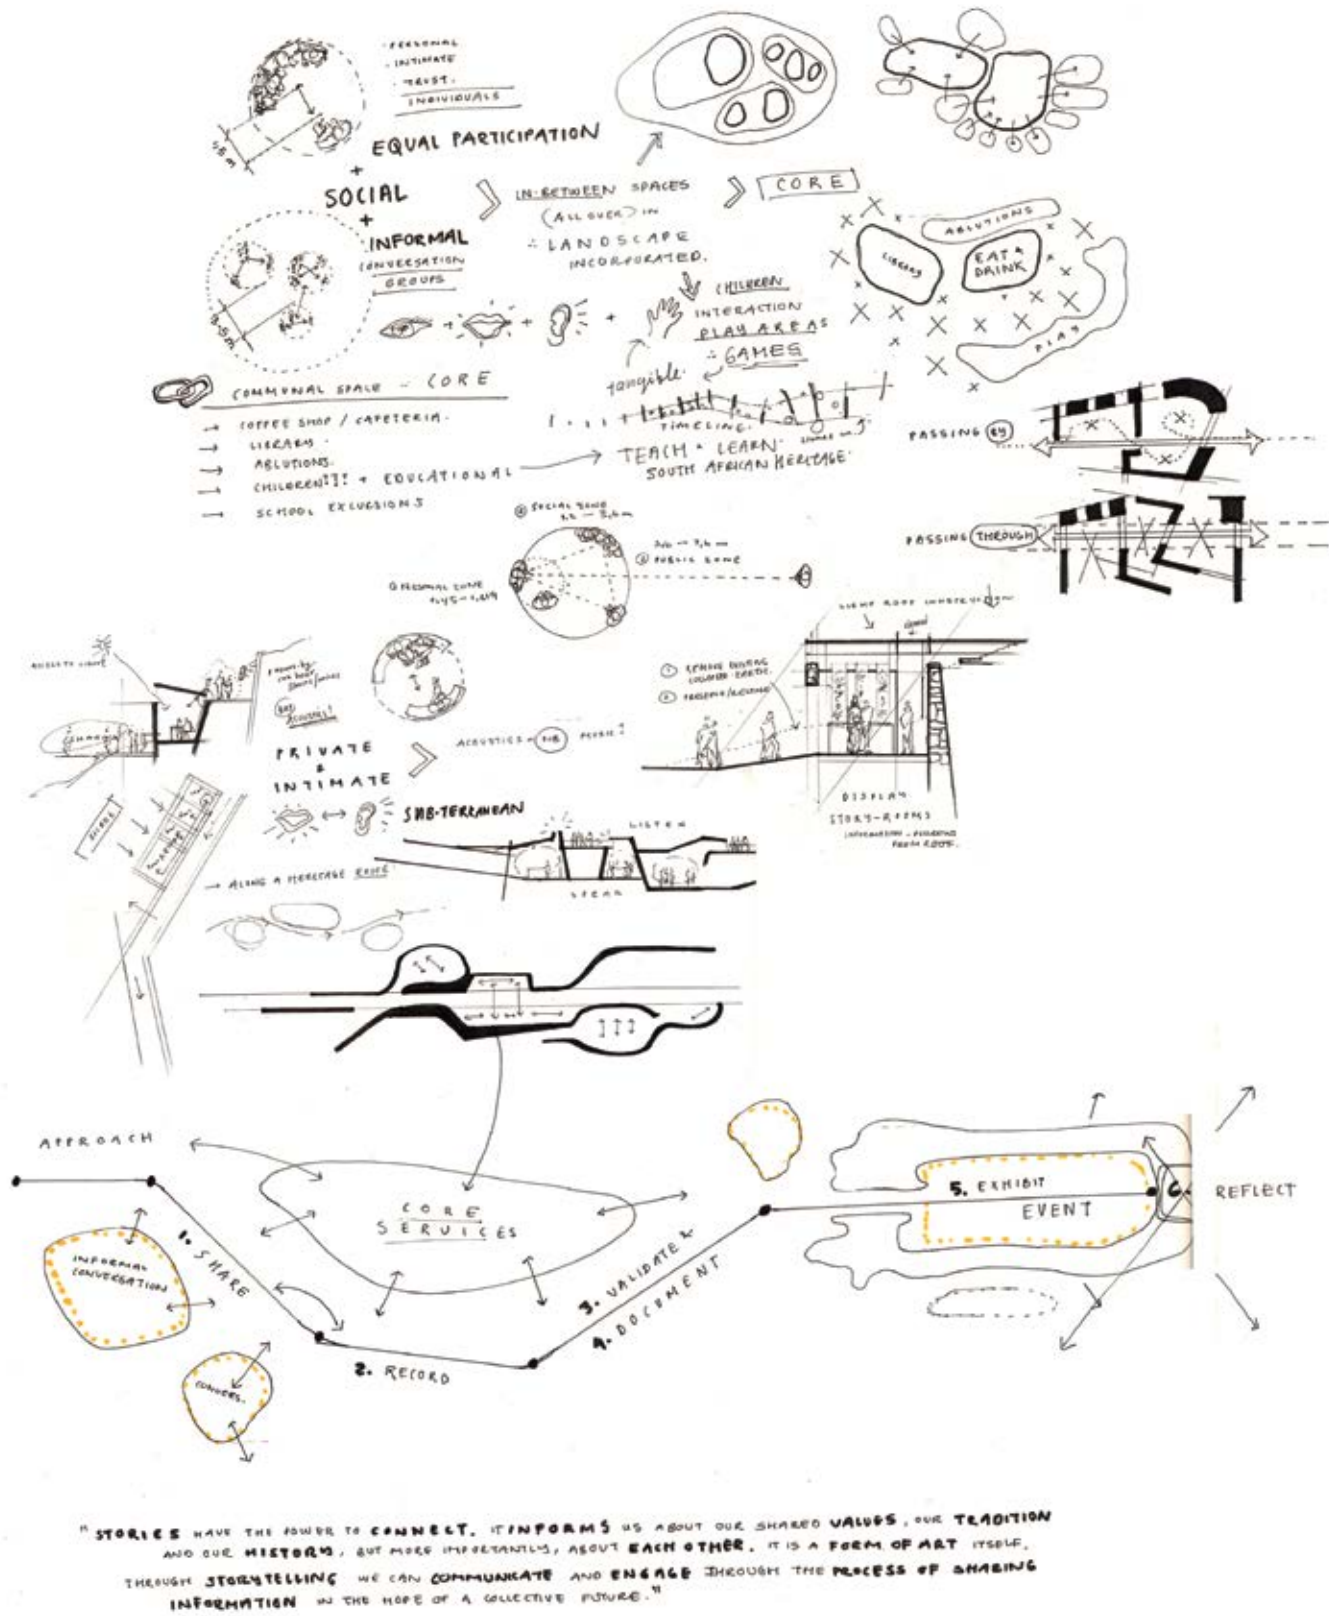 · PERSONAL
· INTIMATE
· TRUST.
INDIVIDUALS
EQUAL PARTICIPATION
+
SOCIAL
+
INFORMAL
CONVERSATION
GROUPS
IN-BETWEEN SPACES
(ALL OVER) IN
∴ LANDSCAPE
INCORPORATED.
CORE
ABLUTIONS
LIBRARY
EAT &
DRINK
PLAY
+ + +
CHILDREN
INTERACTION
PLAY AREAS
∴ GAMES
tangible.
COMMUNAL SPACE - CORE
→ COFFEE SHOP / CAFETERIA.
→ LIBRARY.
→ ABLUTIONS.
→ CHILDREN!!! + EDUCATIONAL
→ SCHOOL EXCURSIONS
TIMELINE.
TEACH + LEARN.
SOUTH AFRICAN HERITAGE.
PASSING BY
PASSING THROUGH
SOCIAL ZONE
PUBLIC ZONE
PERSONAL ZONE
PRIVATE
&
INTIMATE
ACOUSTICS
SUB-TERRANEAN
LISTEN
SPEAK
→ ALONG A HERITAGE ROUTE.
DISPLAY
STORY-ROOMS
FROM ROOF.
APPROACH
CORE
SERVICES
INFORMAL
CONVERSATION
1. SHARE
CONVERS.
2. RECORD
3. VALIDATE &
4. DOCUMENT
5. EXHIBIT
EVENT
6.
REFLECT
"STORIES HAVE THE POWER TO CONNECT. IT INFORMS US ABOUT OUR SHARED VALUES, OUR TRADITION
AND OUR HISTORY, BUT MORE IMPORTANTLY, ABOUT EACH OTHER. IT IS A FORM OF ART ITSELF.
THROUGH STORYTELLING WE CAN COMMUNICATE AND ENGAGE THROUGH THE PROCESS OF SHARING
INFORMATION IN THE HOPE OF A COLLECTIVE FUTURE."